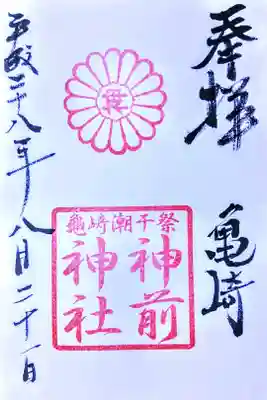 奉拝
亀崎
亀崎潮干祭
神前
神社
平成二十八年八月二十一日